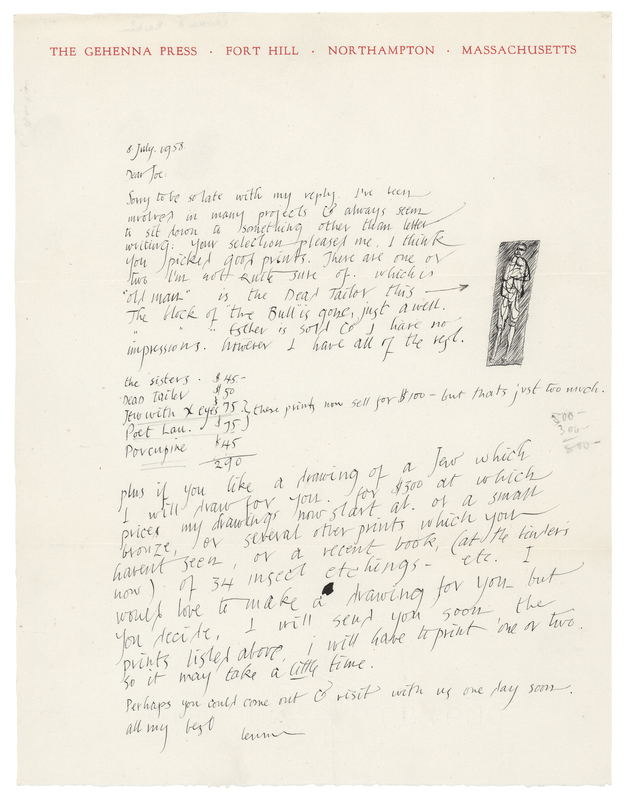 THE GEHENNA PRESS · FORT HILL · NORTHAMPTON · MASSACHUSETTS
8 July. 1958.
Dear Joe
Sorry to be so late with my reply. I've been
involved in many projects & always seem
to sit down to something other than letter
writing. Your selection pleased me. I think
you picked good prints. There are one or
two I'm not quite sure of. which is
"old man" is the Dead Tailor this →
The block of "the Bull" is gone, just as well.
" " " Esther is sold & I have no
impressions. however I have all of the rest.
the sisters. $45-
Dead Tailor $50
Jew with X eyes $75 } these prints now sell for $100 - but thats just too much.
Poet Lau. $75 }
Porcupine $45
290
500-
300-
800-
plus if you like a drawing of a Jew which
I will draw for you. for $300 at which
prices my drawings now start at. or a small
bronze, or several other prints which you
havent seen, or a recent book, (at the binders
now) of 34 insect etchings - etc. I
would love to make a drawing for you - but
you decide. I will send you soon the
prints listed above, i will have to print one or two.
so it may take a little time.
Perhaps you could come out & visit with us one day soon.
all my best
Lennie